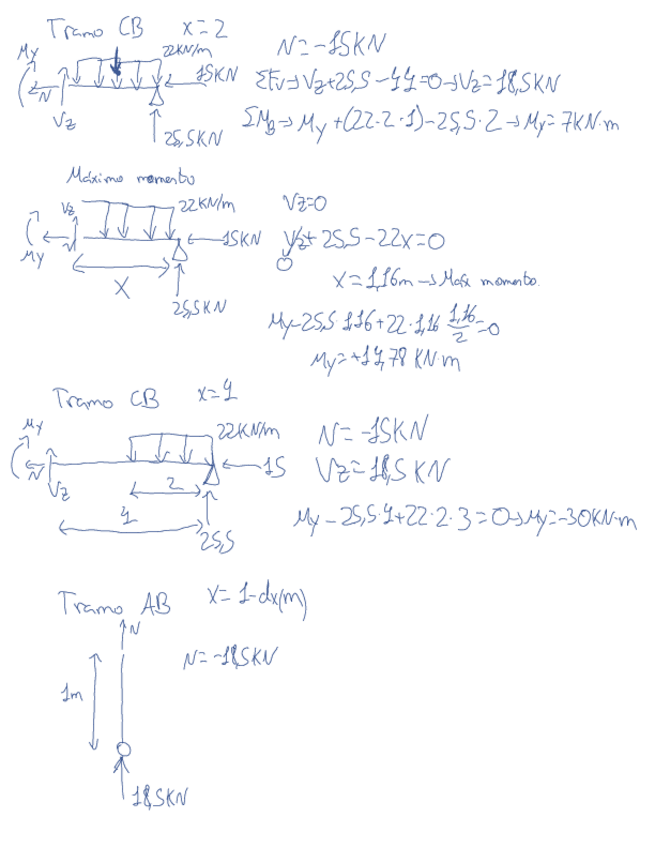 Tramo CB x=2
My
22KN/m
N
15KN
Vz
25,5KN
N=-15KN
ΣFv→Vz+25,5-44=0→Vz=18,5KN
ΣMB→My+(22·2·1)-25,5·2→My=7KN·m
Máximo momento
Vz
22KN/m
N
15KN
My
X
25,5KN
Vz=0
Vz+25,5-22x=0
0
x=1,16m→Máx momento.
My-25,5·1,16+22·1,16 1,16/2=0
My=+14,78 KN·m
Tramo CB x=4
My
22KN/m
N
15
Vz
2
4
25,5
N=-15KN
Vz=18,5KN
My-25,5·4+22·2·3=0→My=-30KN·m
Tramo AB x=1-dx(m)
N
1m
N=-18,5KN
18,5KN